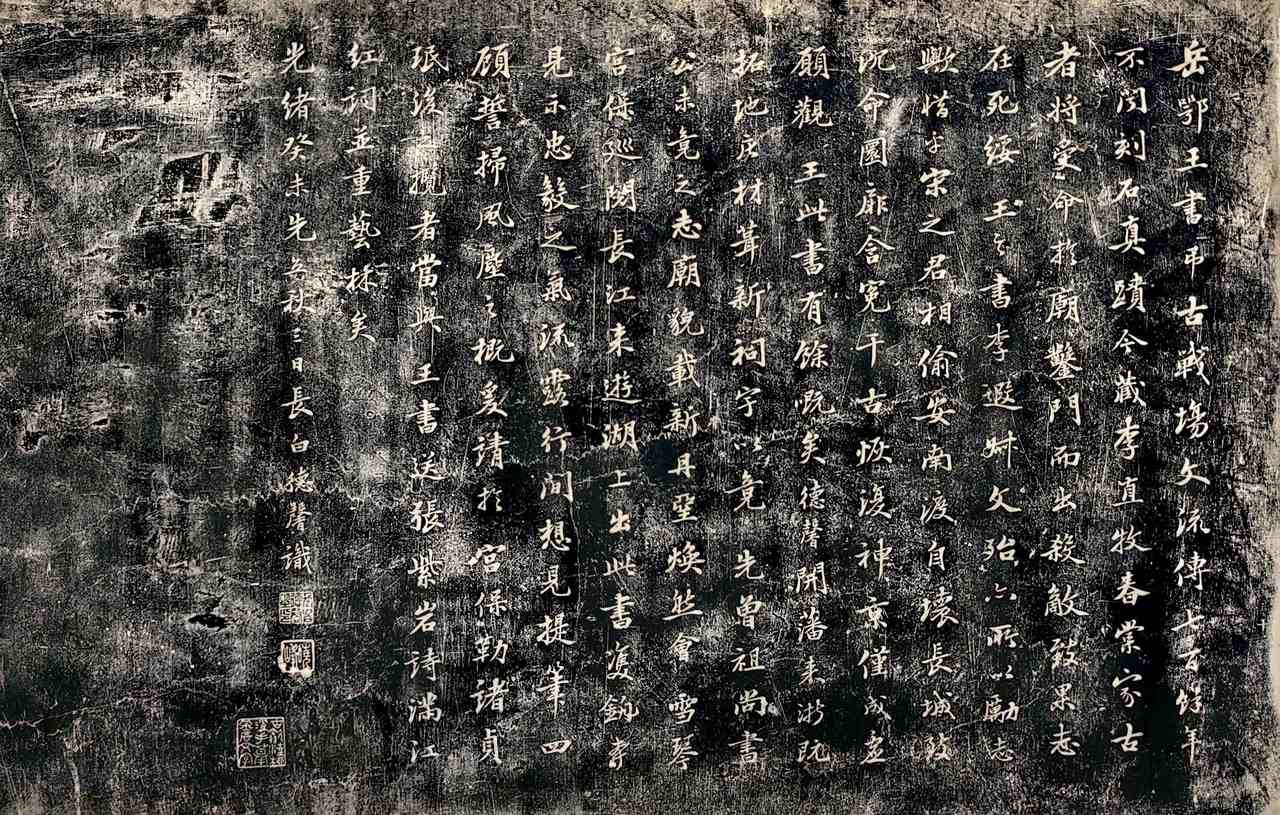 岳鄂王書弔古戰場文流傳七百餘年
不聞刻石真蹟今藏李直牧春棠家古
者將受命於廟鑿門而出殺敵致果志
在死綏王之書李遐叔文殆亦所以勵志
歟惜乎宋之君相偷安南渡自壞長城致
沉命圜扉含冤千古恢復神京僅成虛
願觀王此書有餘慨矣德馨開藩來浙既
拓地庀材葺新祠宇以竟先曾祖尚書
公未竟之志廟貌載新丹堊煥然會雪琴
宮保巡閱長江來遊湖上出此書雙鉤
見示忠毅之氣流露行間想見提筆四
顧誓掃風塵之概爰請於宮保勒諸貞
珉後之攬者當與王書送張紫岩詩滿江
紅詞並重藝林矣
光緒癸未先立秋三日長白德馨識